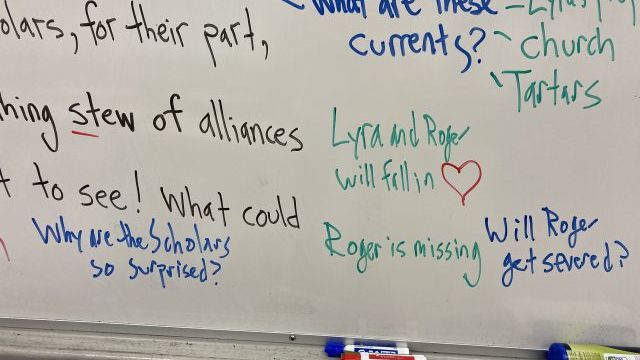 olars, for their part,
hing stew of alliances
t to see! What could
Why are the Scholars
so surprised?
What are these
currents?
church
Tartars
Lyra and Roger
will fall in
Roger is missing
Will Roger
get severed?